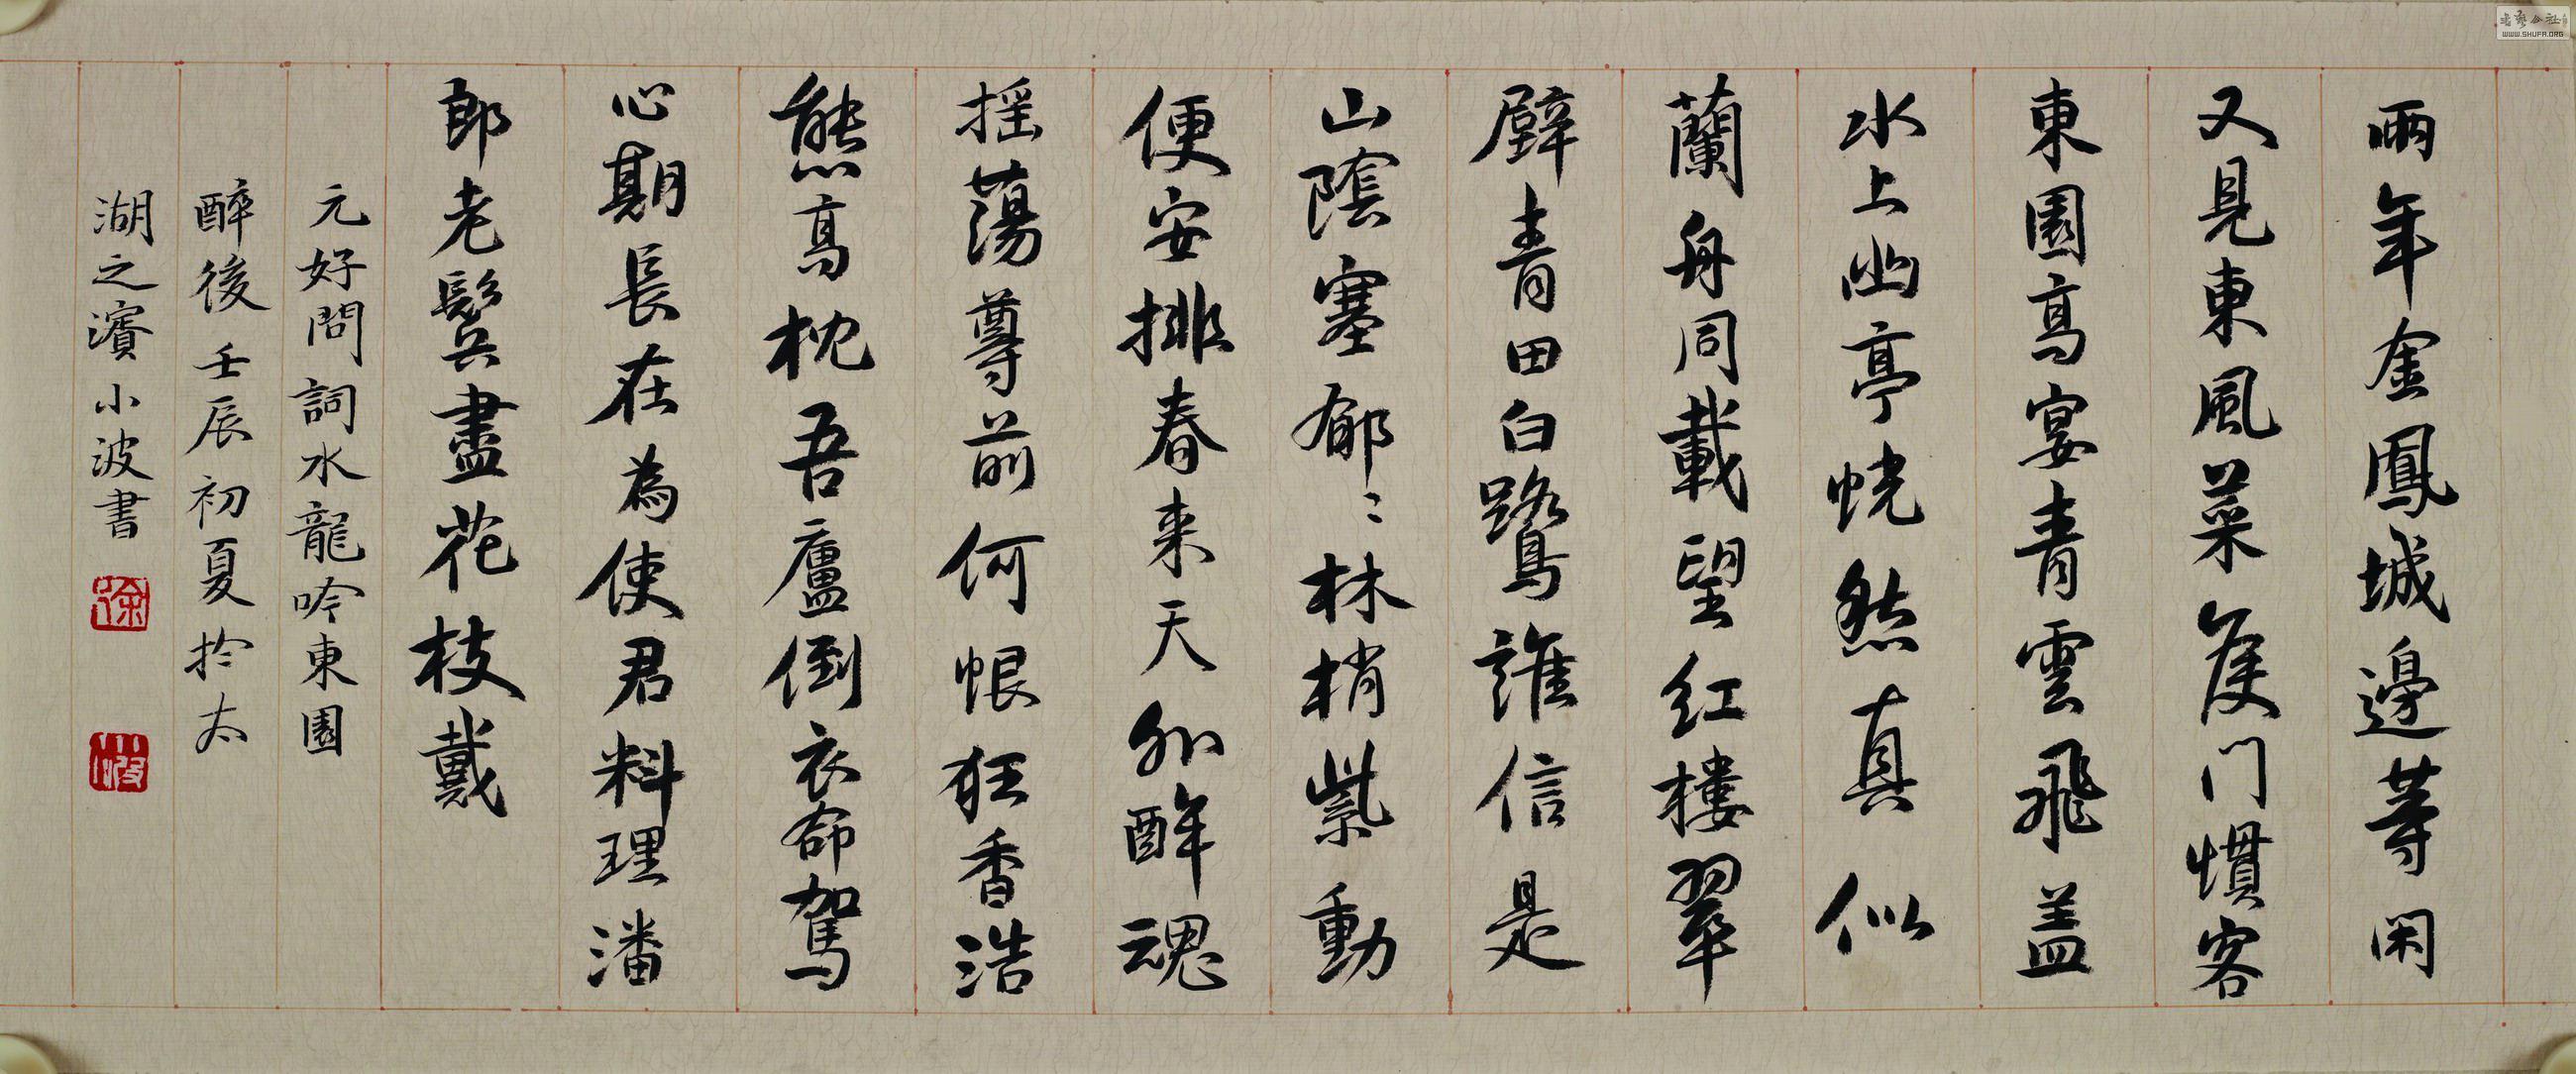 兩年金鳳城邊等閑
又見東風菜侯门慣客
東園高宴青雲飛盖
水上幽亭恍然真似
蘭舟同載望红樓翠
壁青田白鷺誰信是
山陰塞郁〻林梢紫動
便安排春来天外醉魂
摇蕩尊前何恨狂香浩
態高枕吾廬倒衣命駕
心期長在為使君料理潘
郎老鬂盡花枝戴
元好問詞水龍吟東園
醉後壬辰初夏於太
湖之濱小波書
徐
小波
書藝公社
WWW.SHUFA.ORG